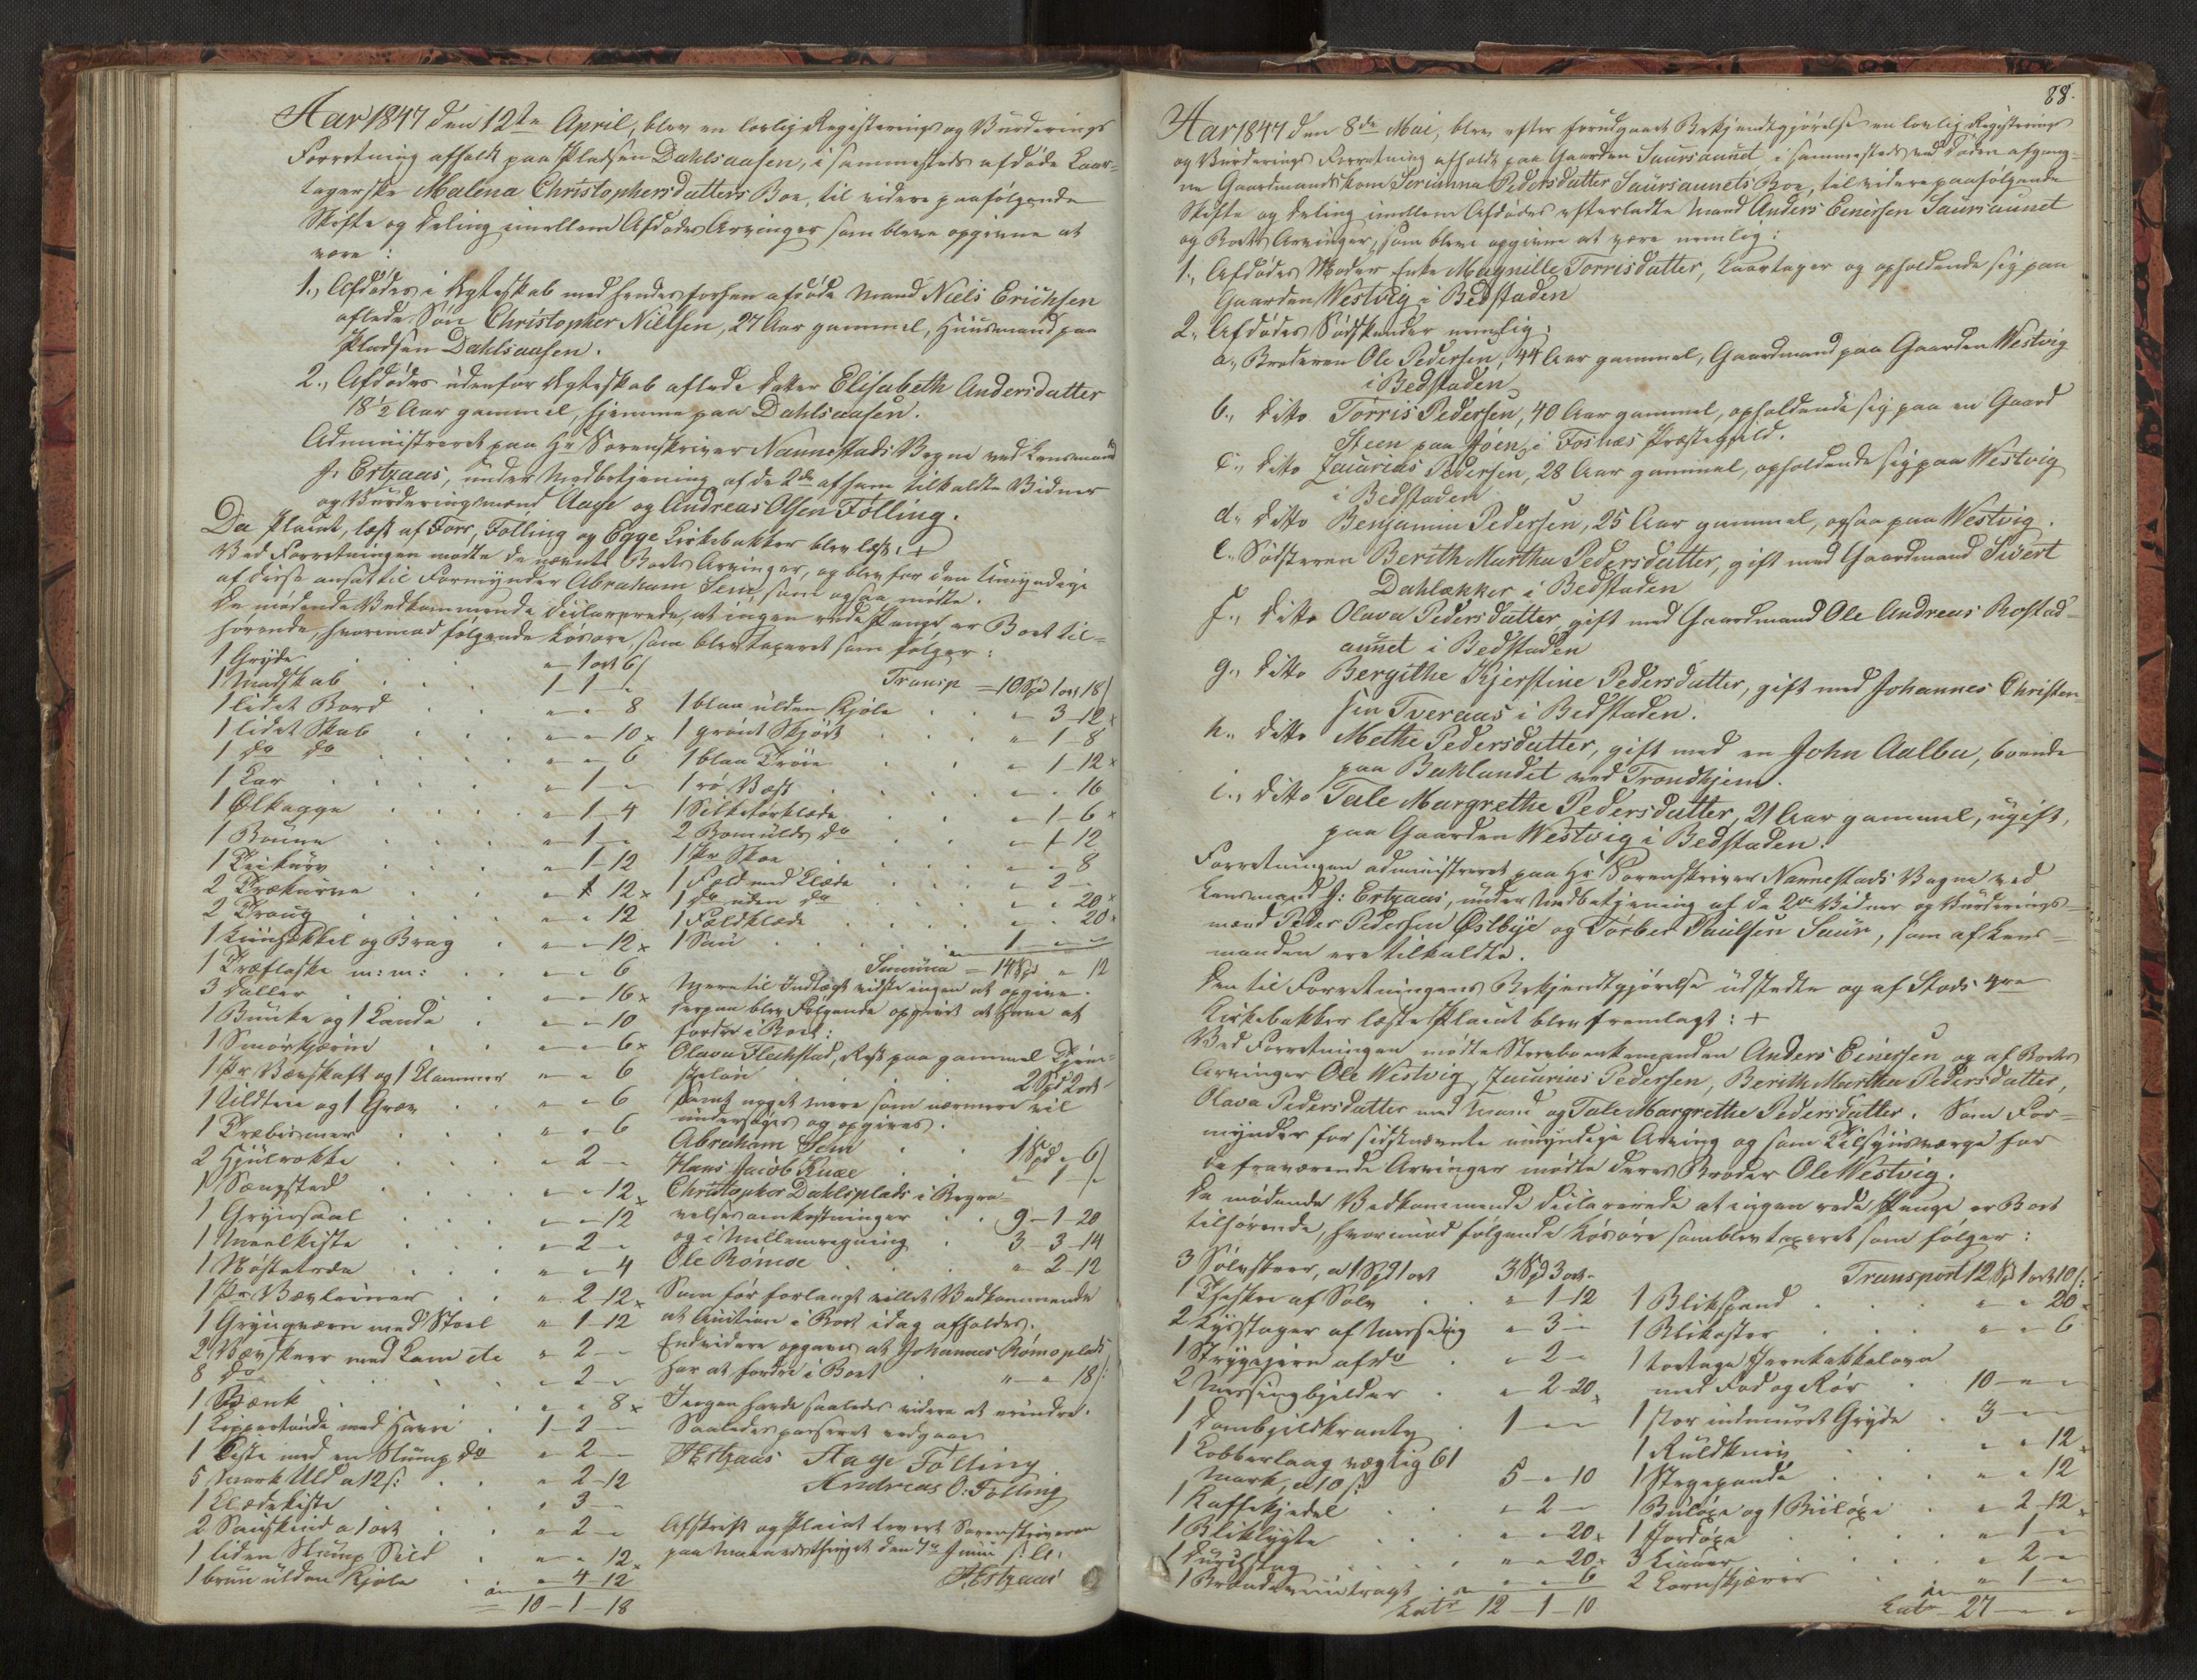 Aar 1847 den 12te April, blev en lovlig Registrerings og Vurderings
Forretning afholdt paa Pladsen Dahlsaasen, i sammesteds afdøde Kaar-
tagerske Malena Christophersdatters Boe, til videre paafølgende
Skifte og Deling imellem Afdødes Arvinger som bleve opgivne at
være:
1., Afdødes i Ægteskab med hendes forhen afdøde Mand Niels Erichsen
aflede Søn Christopher Nielsen, 27 Aar gammel, Huusmand paa
Pladsen Dahlsaasen.
2., Afdødes udenfor Ægteskab aflede Datter Elisabeth Andersdatter
18 1/2 Aar gammel, hjemme paa Dahlsaasen.
Administreret paa Hr Sorenskriver Nannestads Vegne ved Lensmand
J. Ertzaas, under Medbetjening af de 2de af ham tilkaldte Vidner
og Vurderingsmænd Aage og Andreas Olsen Følling.
Da Placat, læst af Fors, Følling og Egge Kirkebakker blev læst: +
Ved Forretningen mødte de nævnte Boets Arvinger, og blev for den Umyndige
af disse ansat til Formynder Abraham Sem, som ogsaa mødte.
De mødende Vedkommende declarerede, at ingen rede Penge er Boet til-
hørende, hvorimod følgende Løsøre, som blev taxeret som følger:
1 Gryde " 1 ort 6 ß
1 Madskab 1 - 1 - "
1 lidet Bord " - " 8
1 lidet Skab " - " - 10 x
1 do do " - " 6
1 Kar " - 1 - "
1 Ølkagge " - 1 - 4
1 Boune " - 1 - "
1 " - 1 - 12
2 Trækurve " - 1 12 x
2 Traug " - " 12
1 Liinhekkel og Brag " - " - 12 x
1 Træflaske m: m: " - " 6
3 Daller " - " - 16 x
1 Bunke og 1 Kande " - " - 10
1 Smørkjærne " - " - 6 x
1 Pr Vævskaft og 1 Klammer " - " 6
1 Ildteie og 1 Grev " - " 6
1 Træbismer " - " 6
2 Hjulrokke " - 2 - "
1 Sængsted " - " - 12 x
1 Grynsaal " - " - 12
1 Meelkiste " - 2 - "
1 Nøstetræ " - " 4
1 Pr Bævleiner " - 2 - 12 x
1 Grynqværn med Stoel " - 1 - 12
2 Vævskeer med Kam etc " - 2 - "
8 do " - 2 - "
1 Bænk " - " 8 x
1 Kippertønde med Havre 1 - 2 - "
1 Kiste med en Slump do " - 2 - "
5 Mark Uld a 12 ß: " - 2 - 12
1 Klædekiste " 3 - "
2 Saueskind a 1 ort " - 2 - "
1 liden Slump Sild " - " 12 x
1 bruun ulden Kjole " - 4 - 12
= 10 - 1 - 18
Transp = 10 Spd 1 ort 18 ß
1 blaa ulden Kjole " - 3 - 12 x
1 grønt Skjørt " - 1 - 8
1 blaa Trøie " - 1 - 12 x
1 rø Vest " - " 16
1 Silketørklæde " - 1 - 6 x
2 Bomulds do " - 1 - 12
1 Pr Skoe " - " 8
1 Feld med Klæde " - 2 - "
1 do uden do " - " 20 x
1 Feldklæde " - " 20 x
1 Sau 1 - " - "
Summa = 14 Spd " 12
Mere til Indtægt vidste ingen at opgive.
Derpaa blev Følgende opgivet at have at
fordre i Boet:
Olava Flechstad, Rest paa gammel Tjene-
steløn 2 Spd 2 ort -
samt noget mere som nærmere vil
undersøges og opgives.
Abraham Sem 1 Spd " 6 ß
Hans Jacob " - 1 - ß
Christopher Dahlsplads i Begra-
velsesomkostninger 9 - 1 - 20
og i Mellemregning 3 - 3 - 14
Ole Rømoe " 2 - 12
Som før forlangt villet Vedkommende
at Auction i Boet idag afholdes.
Endvidere opgaves at Johannes Rømoplads
har at fordre i Boet " - " 18 ß:
Ingen havde saaledes videre at erindre.
Saaledes passeret vedgaaes
JErtzaas Aage Følling
Andreas O: Følling
Afskrift og Placat levert Sorenskriveren
paa Maanedsthinget den 7de Juni s: A:
JErtzaas
88.
Aar 1847 den 8de Mai, blev efter forudgaaet Bekjendtgjørelse en lovlig Registrerings
og Vurderings Forretning afholdt paa Gaarden Saursaunet i sammesteds ved Døden afgang-
ne Gaardmandskone Serianna Pedersdatter Saursaunets Boe, til videre paafølgende
Skifte og Deling imellem Afdødes efterladte Mand Anders Einersen Saursaunet
og Boets Arvinger, som bleve opgivne at være nemlig:
1., Afdødes Moder Enke Magnille Torrisdatter, Kaartager og opholdende sig paa
Gaarden Westvig i Bedstaden
2., Afdødes Sødskender nemlig:
a., Broderen Ole Pedersen, 44 Aar gammel, Gaardmand paa Gaarden Westvig
i Bedstaden
b., ditto Torris Pedersen, 40 Aar gammel, opholdende sig paa en Gaard
Steen paa Jøen i Fosnæs Præstegjeld.
c., ditto Zacarias Pedersen, 28 Aar gammel, opholdende sig paa Westvig
i Bedstaden
d., ditto Benjamin Pedersen, 25 Aar gammel, ogsaa paa Westvig.
e., Sødsteren Berith Martha Pedersdatter, gift med Gaardmand Sivert
Dahlækker i Bedstaden
f., ditto Olava Pedersdatter, gift med Gaardmand Ole Andreas Rostad-
aunet i Bedstaden
g., ditto Bergithe Kjerstine Pedersdatter, gift med Johannes Christen-
sen Tveraas i Bedstaden.
h., ditto Methe Pedersdatter, gift med en John Aalbu, boende
paa Baklandet ved Trondhjem.
i., ditto Tale Margrethe Pedersdatter, 21 Aar gammel, ugift,
paa Gaarden Westvig i Bedstaden.
Forretningen administreret paa Hr Sorenskriver Nannestads Vegne ved
Lensmand J: Ertzaas, under Medbetjening af de 2de Vidner og Vurderings-
mænd Peder Pedersen Østbye og Torber Paulsen Saur, som af Lens-
manden ere tilkaldte.
Den til Forretningens Bekjendtgjørelse udstedte og af Stods
Kirkebakker læste Placat blev fremlagt: +
Ved Forretningen mødte Sterboenkemanden Anders Einersen og af Boets
Arvinger Ole Westvig, Zacarias Pedersen, Berith Martha Pedersdatter,
Olava Pedersdatter med Mand og Tale Margrethe Pedersdatter. Som For-
mynder for sidstnævnte umyndige Arving og som Tilsynsværge for
de fraværende Arvinger mødte deres Broder Ole Westvig.
De mødende Vedkommende declarerede at ingen rede Penge er Boet
tilhørende, hvorimod følgende Løsøre som blev taxeret som følger:
3 Sølvskeer, a 1 Spd 1 ort 3 Spd 3 ort -
1 Theske af Sølv " - 1 - 12
2 Lysstager af Messing " - 3 - "
1 Strygejern af do " - 2 - "
2 Messingbjelder " - 2 - 20 x
1 Dombjeldkrants 1 - " - "
1 Kobberlaag vægtig 61
Mark, a 10 ß 5 - " 10
1 Kaffekjedel " - 2 - "
1 Bliklygte " - " 20 x
1 Durchslag " - " 20 x
1 Brændeviinstragt " - " 6
Lat. 12 - 1 - 10
Transport 12 Spd 1 ort 10 ß:
1 Blikspand " - " 20 x
1 Blikøster " - " 6
1 toetages Jernkakkelovn
med Fod og Rør 10 - " - "
1 stor indmuret Gryde 3 - " - "
1 Ruldkniv " - " 12 x
1 Stegepande " - " 12
1 Buløxe og 1 Biiløxe " - 2 - 12 x
1 Jordøxe " - 1 - "
3 Liaaer " - 2 - "
2 Kornskjærer " - 1 - "
Lat. 27 - " - "